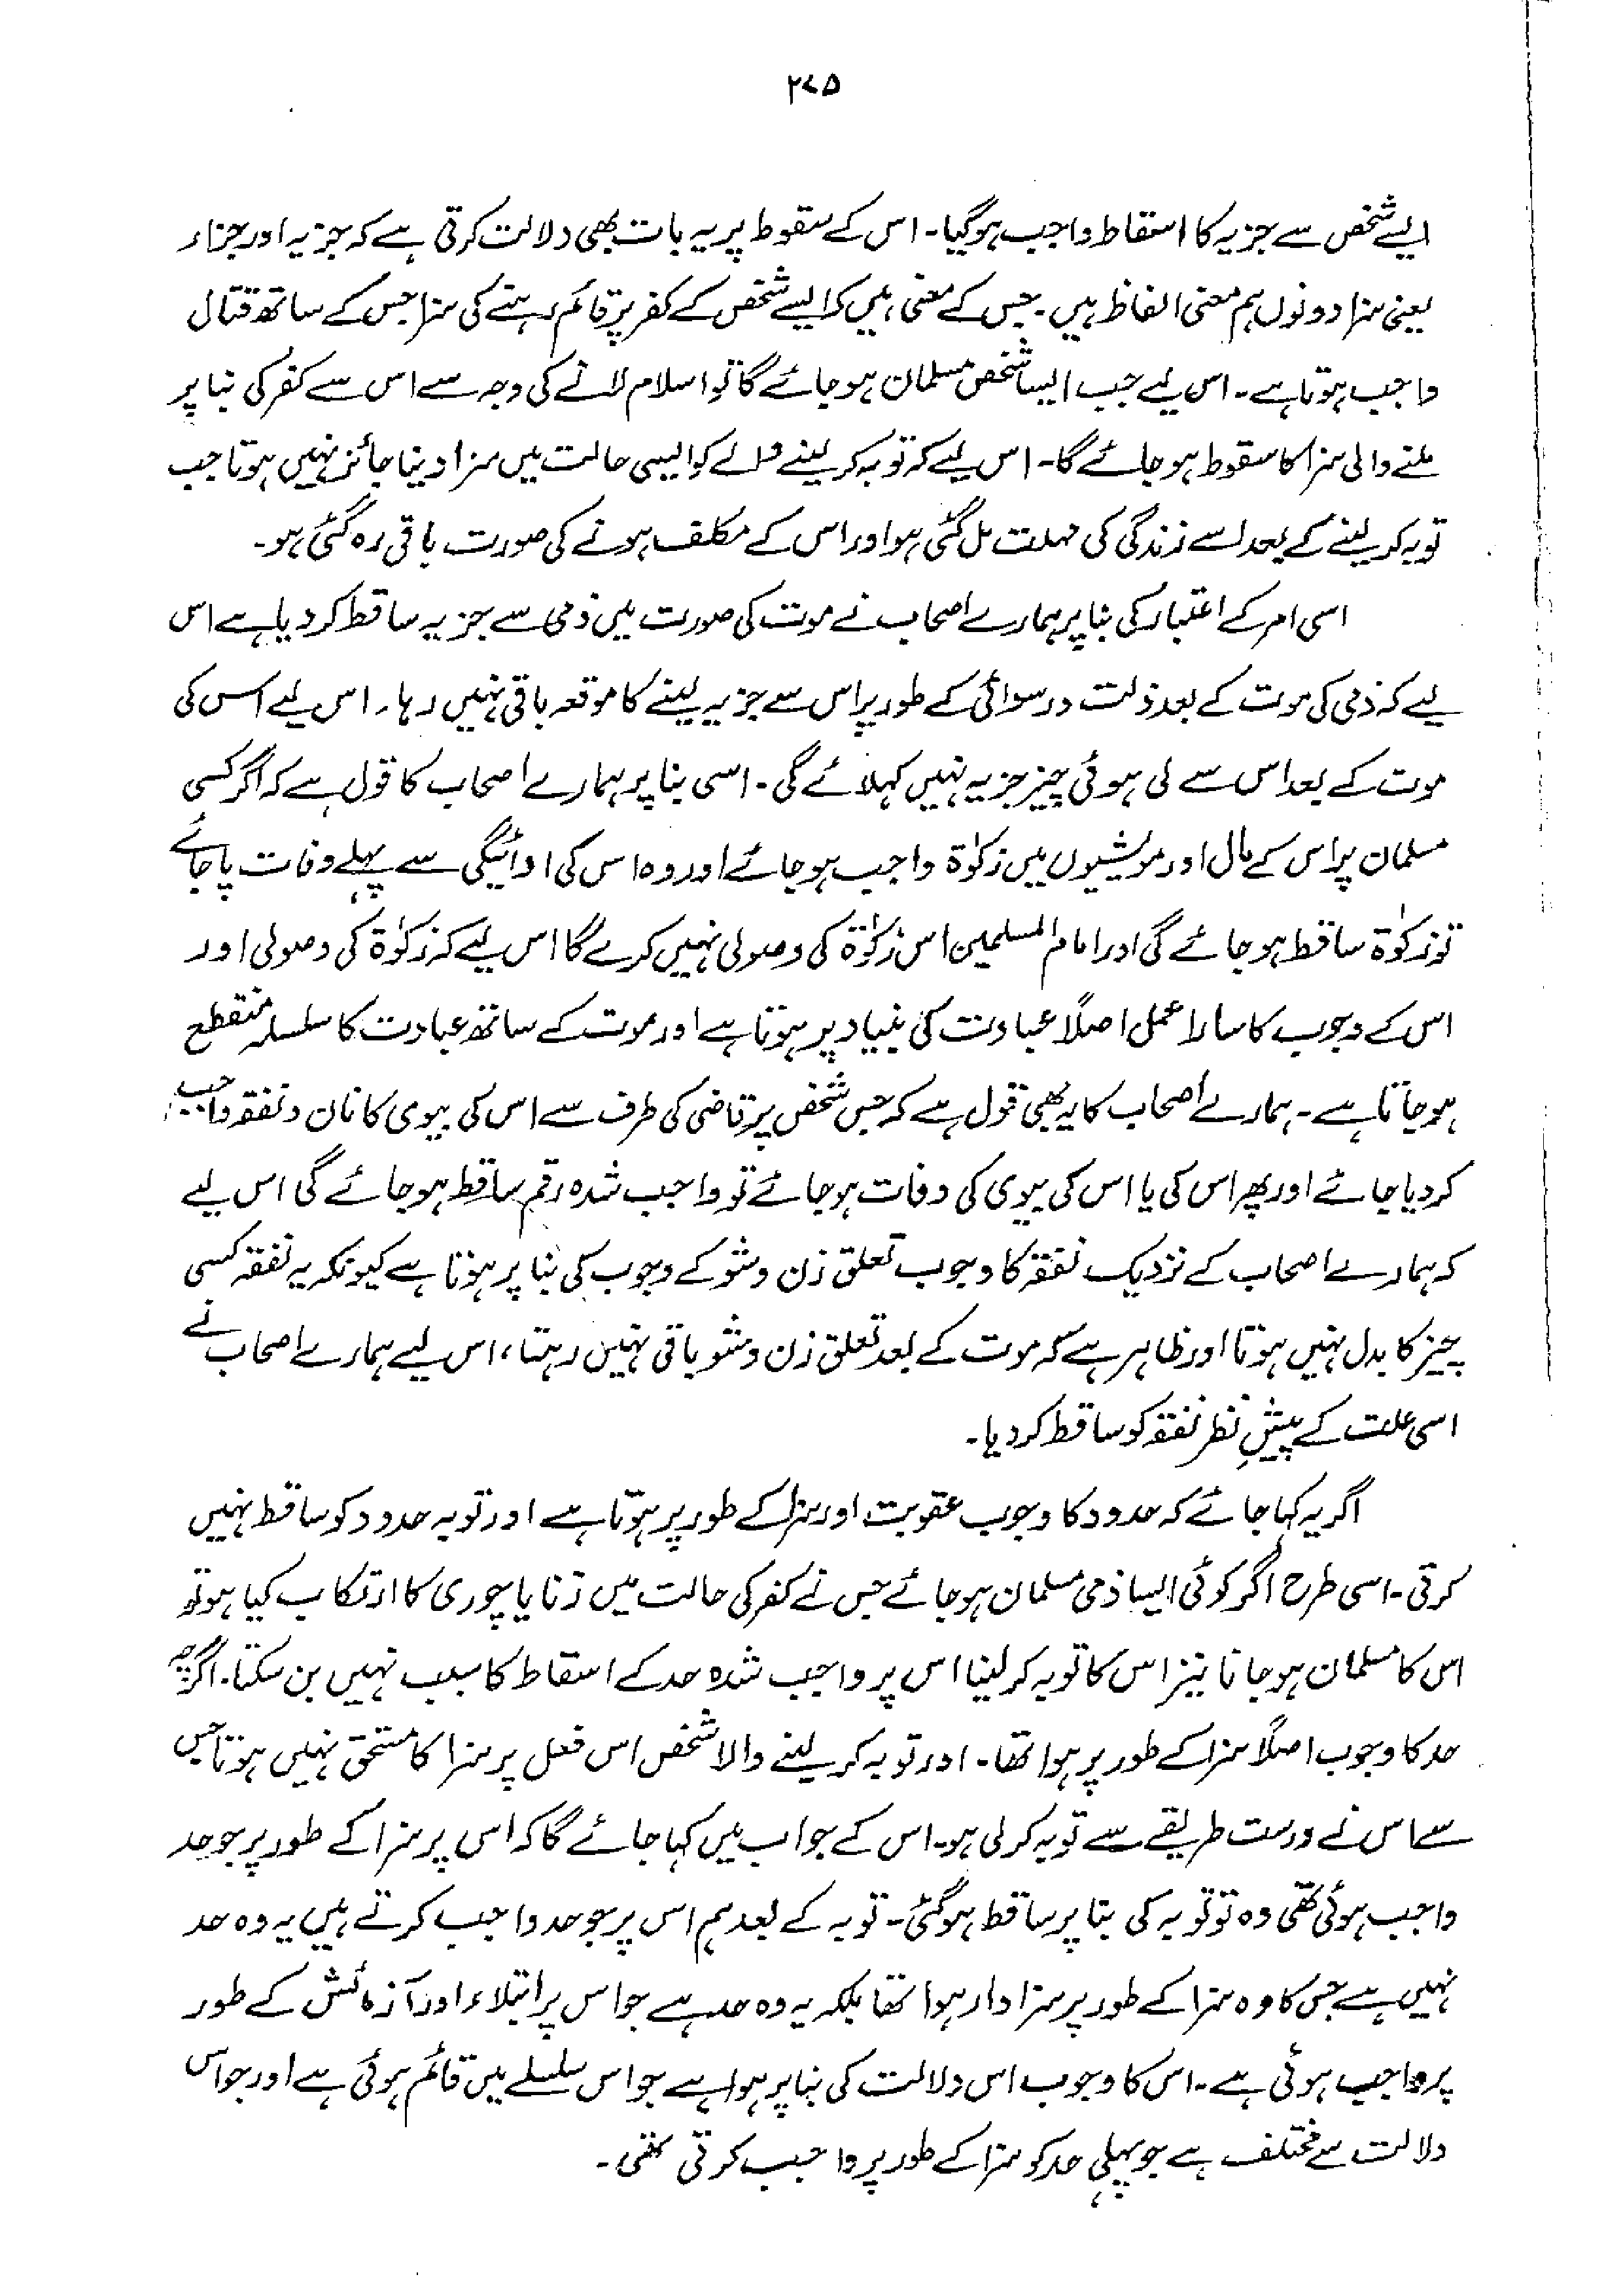 ۲۷۵
ایسے شخص سے جزیہ کا اسقاط واجب ہوگیا۔ اس کے سقوط پر یہ بات بھی دلالت کرتی ہے کہ جزیہ اور جزاء
یعنی سزا دونوں ہم معنی الفاظ ہیں۔ جس کے معنی ہیں کہ ایسے شخص کے کفر پر قائم رہنے کی سزا جس کے ساتھ قتال
واجب ہوتا ہے۔ اس لیے جب ایسا شخص مسلمان ہوجائے گا تو اسلام لانے کی وجہ سے اس سے کفر کی بنا پر
ملنے والی سزا کا سقوط ہوجائے گا۔ اس لیے کہ توبہ کر لینے والے کو ایسی حالت میں سزا دینا جائز نہیں ہوتا جب
توبہ کر لینے کے بعد اسے زندگی کی مہلت مل گئی ہو اور اس کے مکلف ہونے کی صورت باقی رہ گئی ہو۔
اسی امر کے اعتبار کی بنا پر ہمارے اصحاب نے موت کی صورت میں ذمی سے جزیہ ساقط کر دیا ہے اس
لیے کہ ذمی کی موت کے بعد ذلت و رسوائی کے طور پر اس سے جزیہ لینے کا موقعہ باقی نہیں رہا۔ اس لیے اس کی
موت کے بعد اس سے لی ہوئی چیز جزیہ نہیں کہلائے گی۔ اسی بنا پر ہمارے اصحاب کا قول ہے کہ اگر کسی
مسلمان پر اس کے مال اور مویشیوں میں زکوٰۃ واجب ہوجائے اور وہ اس کی ادائیگی سے پہلے وفات پا جائے
تو زکوٰۃ ساقط ہوجائے گی اور امام المسلمین اس زکوٰۃ کی وصولی نہیں کرے گا اس لیے کہ زکوٰۃ کی وصولی اور
اس کے وجوب کا سارا عمل اصلاً عبادت کی بنیاد پر ہوتا ہے اور موت کے ساتھ عبادت کا سلسلہ منقطع
ہوجاتا ہے۔ ہمارے اصحاب کا یہ بھی قول ہے کہ جس شخص پر قاضی کی طرف سے اس کی بیوی کا نان و نفقہ واجب
کر دیا جائے اور پھر اس کی یا اس کی بیوی کی وفات ہوجائے تو واجب شدہ رقم ساقط ہوجائے گی اس لیے
کہ ہمارے اصحاب کے نزدیک نفقہ کا وجوب تعلق زن و شو کے وجوب کی بنا پر ہوتا ہے کیونکہ یہ نفقہ کسی
چیز کا بدل نہیں ہوتا اور ظاہر ہے کہ موت کے بعد تعلق زن و شو باقی نہیں رہتا، اس لیے ہمارے اصحاب نے
اسی علت کے پیشِ نظر نفقہ کو ساقط کر دیا۔
اگر یہ کہا جائے کہ حدود کا وجوب عقوبت اور سزا کے طور پر ہوتا ہے اور توبہ حدود کو ساقط نہیں
کرتی۔ اسی طرح اگر کوئی ایسا ذمی مسلمان ہوجائے جس نے کفر کی حالت میں زنا یا چوری کا ارتکاب کیا ہو تو
اس کا مسلمان ہوجانا نیز اس کا توبہ کر لینا اس پر واجب شدہ حد کے اسقاط کا سبب نہیں بن سکتا۔ اگرچہ
حد کا وجوب اصلاً سزا کے طور پر ہوا تھا۔ اور توبہ کر لینے والا شخص اس فعل پر سزا کا مستحق نہیں ہوتا جس
سے اس نے درست طریقے سے توبہ کر لی ہو۔ اس کے جواب میں کہا جائے گا کہ اس پر سزا کے طور پر جو حد
واجب ہوئی تھی وہ تو توبہ کی بنا پر ساقط ہوگئی۔ توبہ کے بعد ہم اس پر جو حد واجب کرتے ہیں یہ وہ حد
نہیں ہے جس کا وہ سزا کے طور پر سزا وار ہوا تھا بلکہ یہ وہ حد ہے جو اس پر ابتلاء اور آزمائش کے طور
پر واجب ہوئی ہے۔ اس کا وجوب اس دلالت کی بنا پر ہوا ہے جو اس سلسلے میں قائم ہوئی ہے اور جو اس
دلالت سے مختلف ہے جو پہلی حد کو سزا کے طور پر واجب کرتی تھی۔